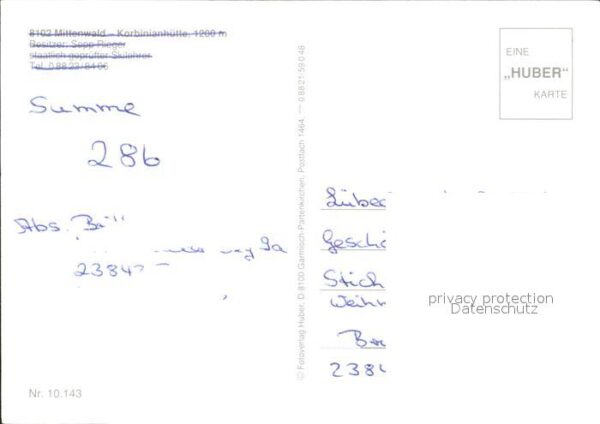 8102 Mittenwald – Korbinianhütte, 1200 m
Besitzer: Sepp Rieger
staatlich geprüfter Skilehrer
Tel. 0 88 23/84 06
EINE
„HUBER“
KARTE
Summe
286
Abs.
23847
© Fotoverlag Huber, D-8100 Garmisch-Partenkirchen, Postfach 1464, — 0 88 21-59 0 48
Lübec
Geschä
Stich
Weihr
privacy protection
Datenschutz
238
Nr. 10.143